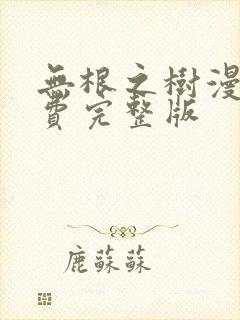 無根之樹漫
費完整版
鹿蘇蘇